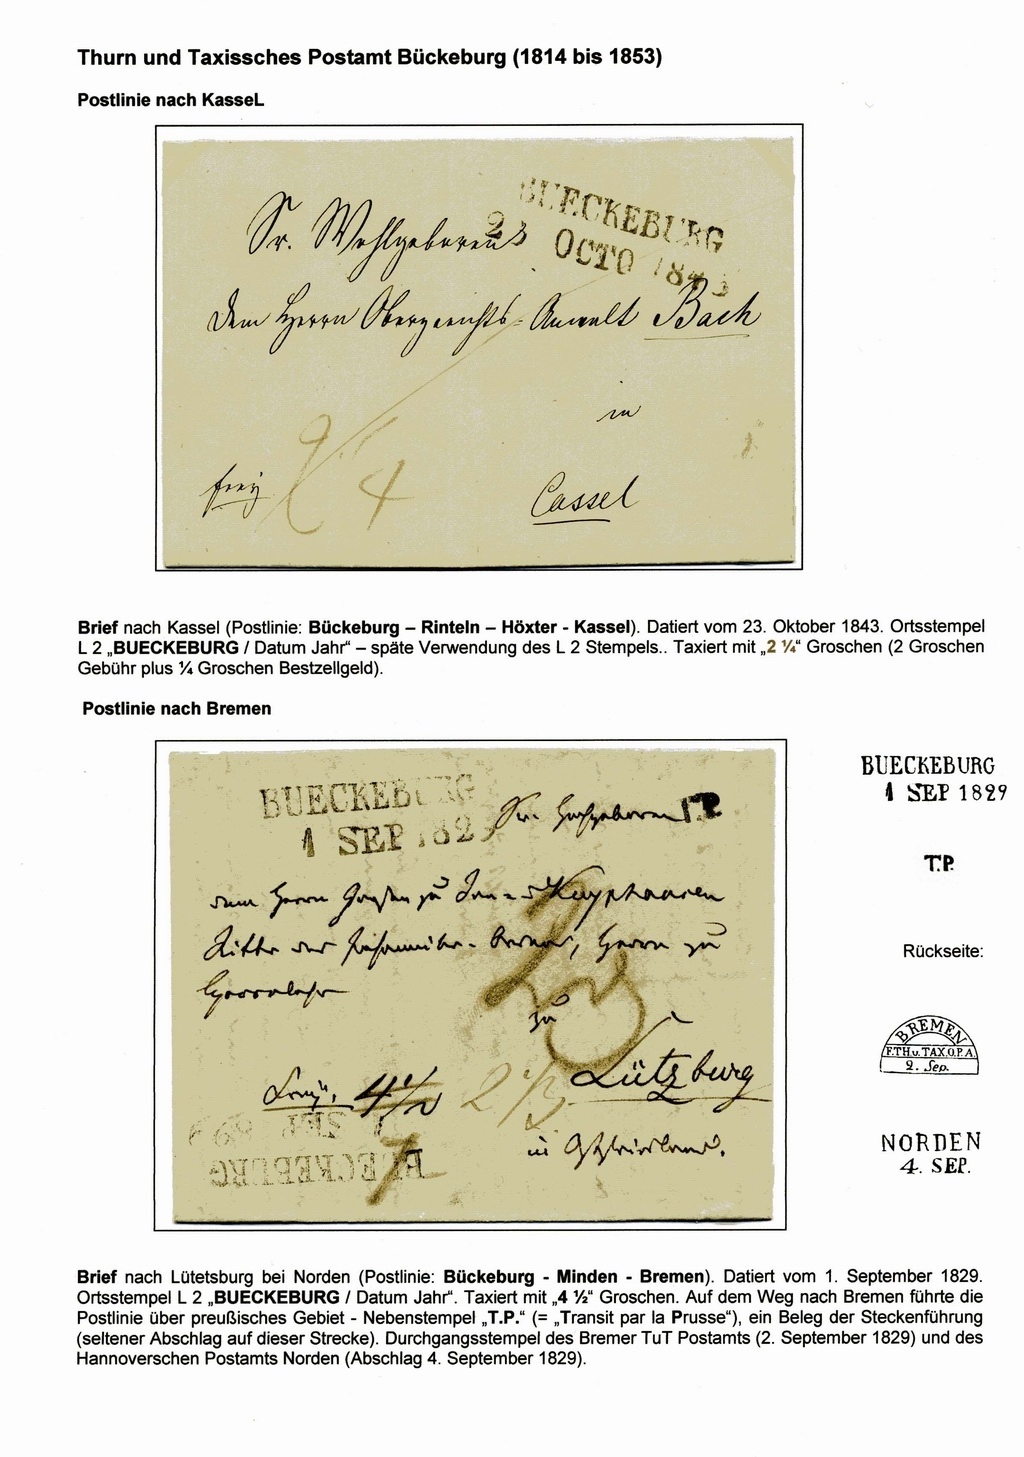 Thurn und Taxissches Postamt Bückeburg (1814 bis 1853)
Postlinie nach KasseL
BUECKEBURG
23 OCTO 1843
Sr. Wohlgeboren
dem Herrn Obergerichts-Anwalt Bach
in
frey
2 1/4
Cassel
Brief nach Kassel (Postlinie: Bückeburg – Rinteln – Höxter - Kassel). Datiert vom 23. Oktober 1843. Ortsstempel
L 2 „BUECKEBURG / Datum Jahr“ – späte Verwendung des L 2 Stempels.. Taxiert mit „2 ¼“ Groschen (2 Groschen
Gebühr plus ¼ Groschen Bestzellgeld).
Postlinie nach Bremen
BUECKEBURG
1 SEP 1829
Sr. Hochgeboren T.P.
dem Herrn Grafen zu Inn- & Knyphausen
Ritter des Johanniter-Ordens, Herrn zu
zu
Lützburg
4 1/2
in Ostfriesland.
1 SEP 1829
BUECKEBURG
BUECKEBURG
1 SEP 1829
T.P.
Rückseite:
BREMEN
F.TH.u.TAX.O.P.A.
2. Sep.
NORDEN
4. SEP.
Brief nach Lütetsburg bei Norden (Postlinie: Bückeburg - Minden - Bremen). Datiert vom 1. September 1829.
Ortsstempel L 2 „BUECKEBURG / Datum Jahr“. Taxiert mit „4 ½“ Groschen. Auf dem Weg nach Bremen führte die
Postlinie über preußisches Gebiet - Nebenstempel „T.P.“ (= „Transit par la Prusse“), ein Beleg der Steckenführung
(seltener Abschlag auf dieser Strecke). Durchgangsstempel des Bremer TuT Postamts (2. September 1829) und des
Hannoverschen Postamts Norden (Abschlag 4. September 1829).